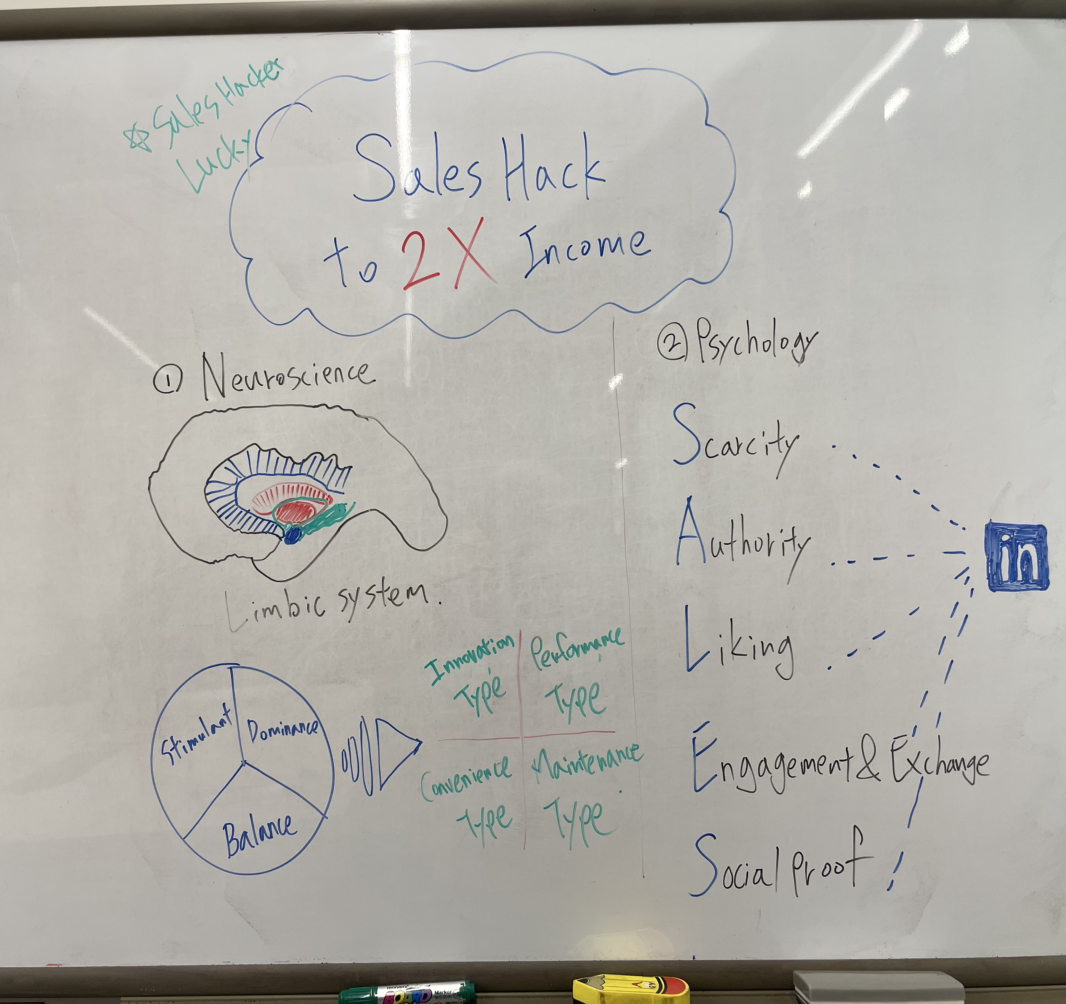 ☆Sales Hacker
Lucky
Sales Hack
to 2X Income
① Neuroscience
Limbic system.
Stimulant
Dominance
Balance
Innovation
Type
Performance
Type
Convenience
Type
Maintenance
Type
② Psychology
Scarcity
Authority
Liking
Engagement & Exchange
Social proof
in
BOARD
Marker